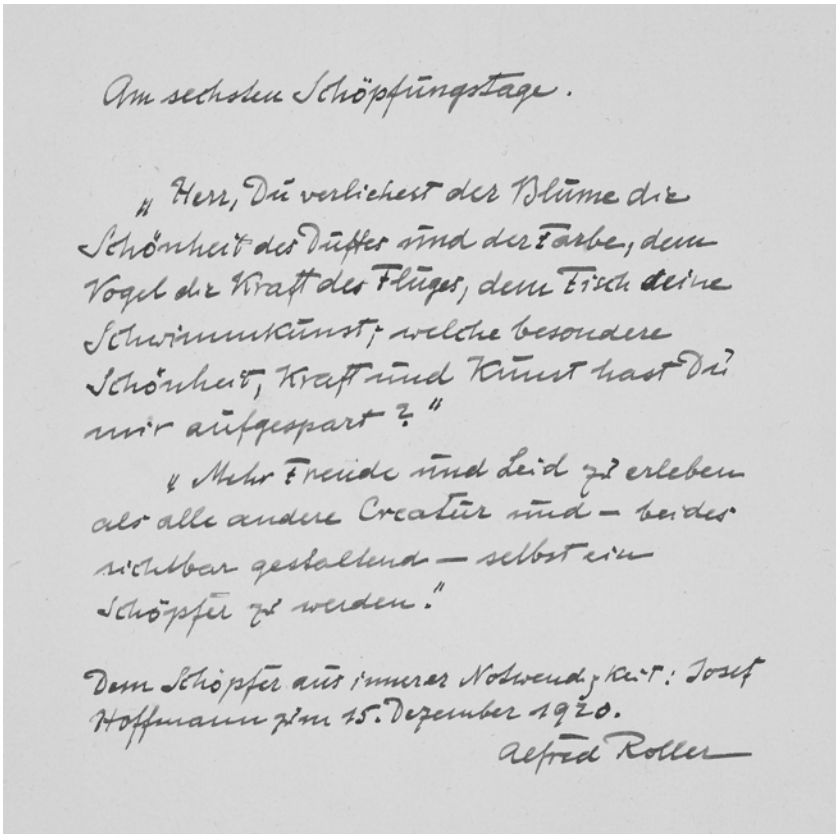 Am sechsten Schöpfungstage.
„Herr, Du verliehest der Blume die
Schönheit des Duftes und der Farbe, dem
Vogel die Kraft des Fluges, dem Fisch deine
Schwimmkunst; welche besondere
Schönheit, Kraft und Kunst hast Du
mir aufgespart?"
„Mehr Freude und Leid zu erleben
als alle andere Creatur und – beides
sichtbar gestaltend – selbst ein
Schöpfer zu werden."
Dem Schöpfer aus innerer Notwendigkeit: Josef
Hoffmann zum 15. Dezember 1920.
Alfred Roller